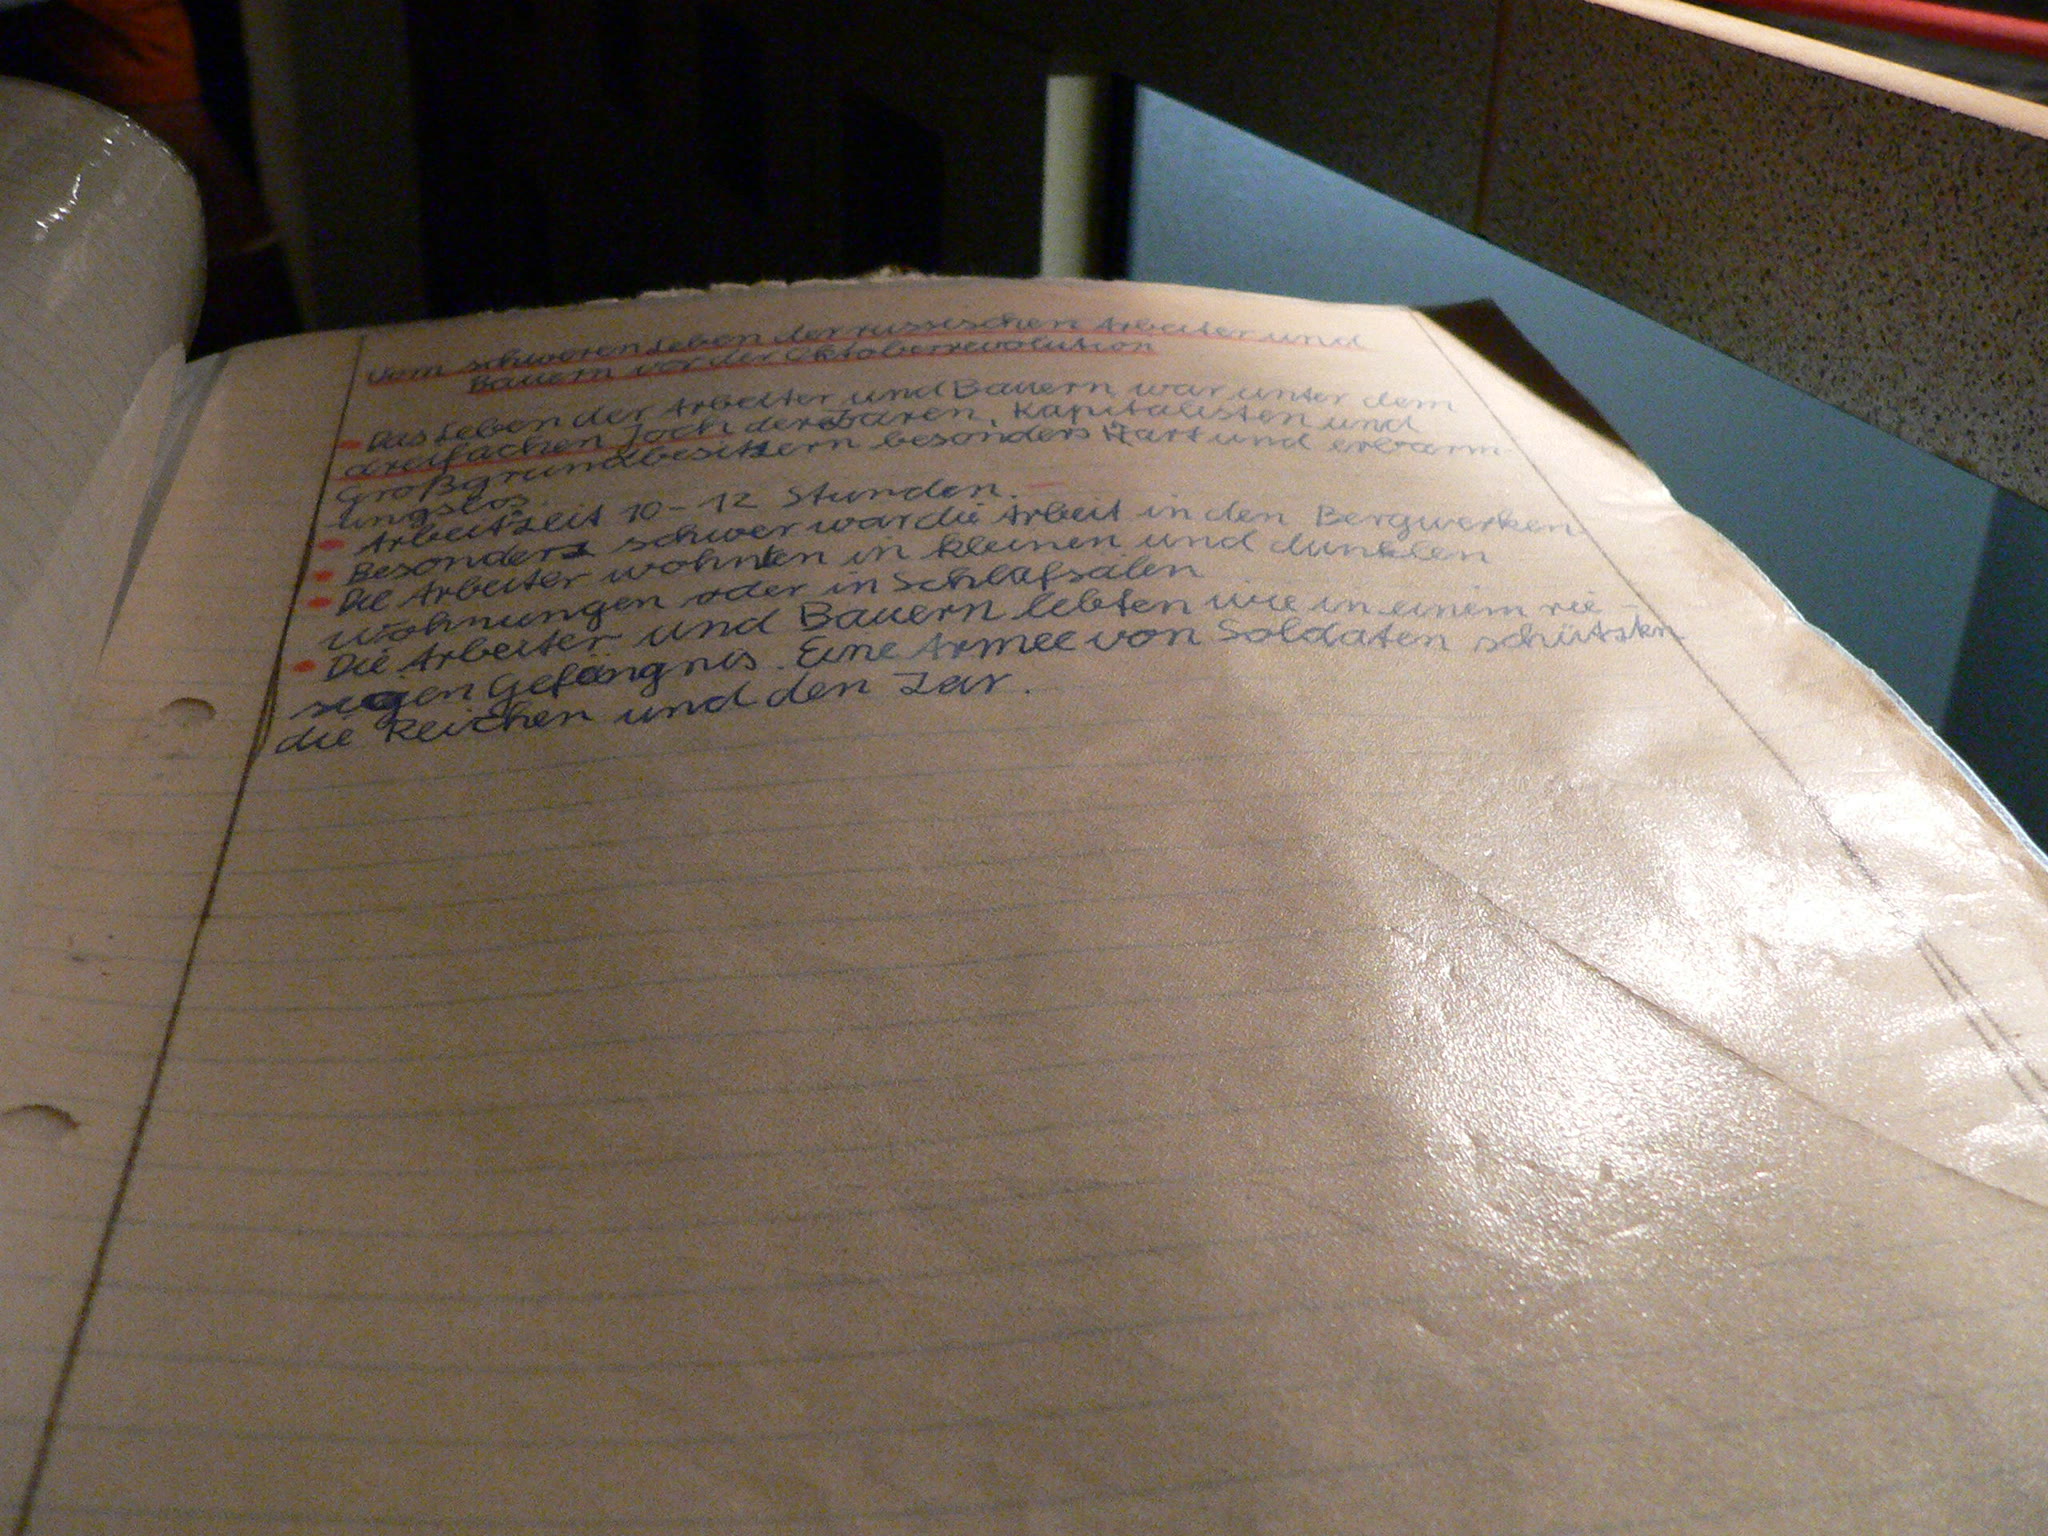 Vom schweren Leben der russischen Arbeiter und
Bauern vor der Oktoberrevolution
Das Leben der Arbeiter und Bauern war unter dem
dreifachen Joch der Zaren, Kapitalisten und
Großgrundbesitzern besonders Hart und erbarm-
ungslos.
Arbeitszeit 10-12 Stunden.
Besonders schwer war die Arbeit in den Bergwerken
Die Arbeiter wohnten in kleinen und dunklen
Wohnungen oder in Schlafsälen
Die Arbeiter und Bauern lebten wie in einem rie-
sigen Gefängnis. Eine Armee von Soldaten schützten
die Reichen und den Zar.